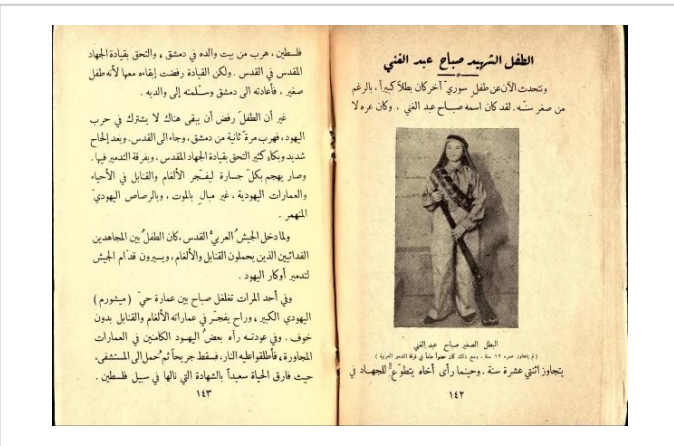 الطفل الشهيد صباح عبد الغني
ونتحدث الآن عن طفل سوريّ آخر كان بطلاً كبيراً ، بالرغم
من صغر سنّه . لقد كان اسمه صباح عبد الغني ، وكان عره لا
البطل الصغير صباح عبد الغني
( لم يتجاوز عمره ١٢ سنة . ومع ذلك كان عضواً عاملاً في فرقة التدمير العربية )
يتجاوز اثنتي عشرة سنة . وحينما رأى أخاه يتطوّع للجهاد في
١٤٢
فلسطين ، هرب من بيت والده في دمشق ، والتحق بقيادة الجهاد
المقدس في القدس . ولكن القيادة رفضت إبقاءه معها لأنه طفل
صغير ، فأعادته الى دمشق وسلّمته إلى والديه .
غير أن الطفل رفض أن يبقى هناك لا يشترك في حرب
اليهود ، فهرب مرة ثانية من دمشق ، وجاء الى القدس . وبعد إلحاح
شديد وبكاء كثير التحق بقيادة الجهاد المقدس ، وبفرقة التدمير فيها .
وصار يهجم بكلّ جسارة ليفجّر الألغام والقنابل في الأحياء
والعمارات اليهودية ، غير مبالٍ بالموت ، وبالرصاص اليهوديّ
المنهمر .
ولما دخل الجيشُ العربيُّ القدس ، كان الطفلُ بين المجاهدين
الفدائيين الذين يحملون القنابل والألغام ، ويسيرون قدّام الجيش
لتدمير أوكار اليهود .
وفي أحد المرات تغلغل صباح بين عمارة حيّ ( ميشورم )
اليهودي الكبير ، وراح يفجّر في عماراته الألغام والقنابل بدون
خوف . وفي عودتـه رآه بعضُ اليهود الكامنين في العمارات
المجاورة ، فأطلقوا عليه النار ، فسقط جريحاً ثم حمل الى المستشفى ،
حيث فارق الحياة سعيداً بالشهادة التي نالها في سبيل فلسطين .
١٤٣